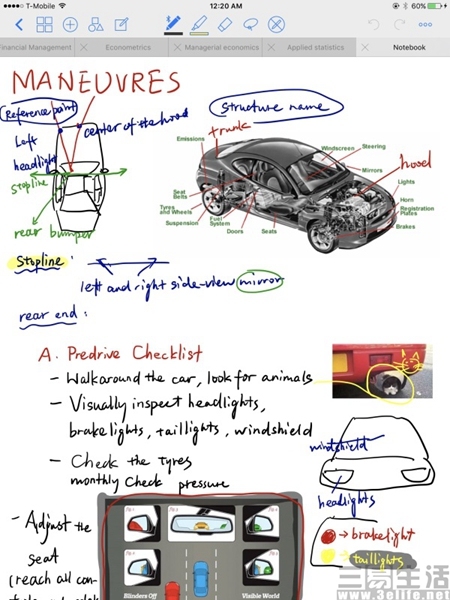 T-Mobile
12:20 AM
60%
Financial Management
Econometrics
Managerial economics
Applied statistics
Notebook
MANEUVRES
Reference point
center of the hood
Left
headlight
stopline
rear bumper
structure name
trunk
hood
Emissions
Windscreen
Steering
Mirrors
Lights
Horn
Registration
Plates
Brakes
Seat
Belts
Tyres
and Wheels
Suspension
Fuel
System
Doors
Seats
Stopline :
left and right side-view mirror
rear end :
A. Predrive Checklist
- Walkaround the car, look for animals
- Visually inspect headlights,
brakelights, taillights, windshield
- Check the tyres
monthly check pressure
windshield
headlights
→ brakelight
→ taillights
- Adjust the
seat
(reach all con-
Blinders Off
Visible World
三易生活
www.3elife.net